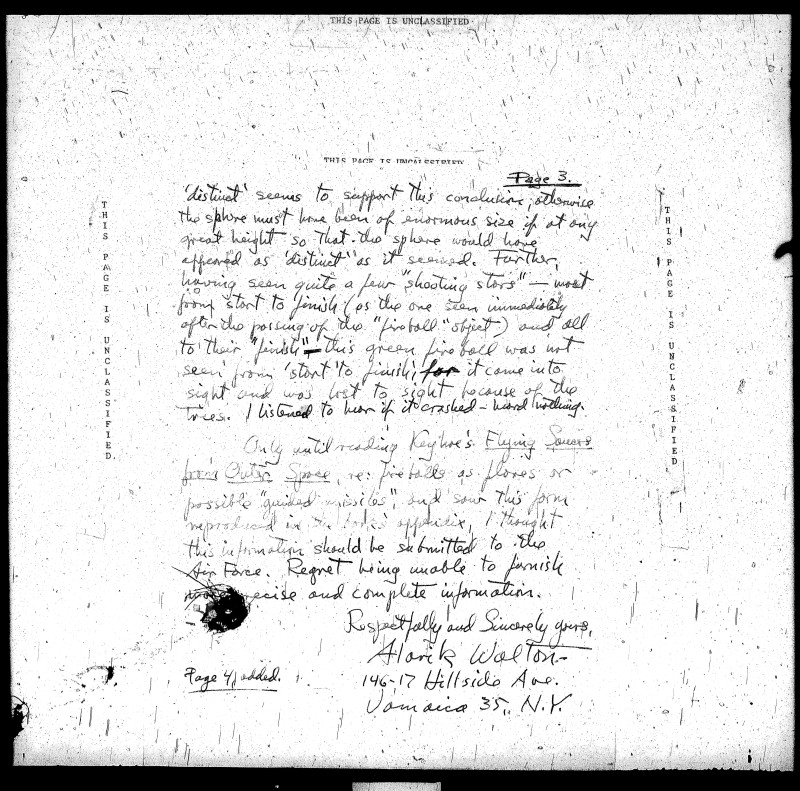 THIS PAGE IS UNCLASSIFIED
THIS PAGE IS UNCALSSIFIED
Page 3.
'distinct' seems to support this conclusion; otherwise
the sphere must have been of enormous size if at any
great height so that the sphere would have
appeared as 'distinct' as it seemed. Further,
having seen quite a few "shooting stars" — most
from start to finish (as the one seen immediately
after the passing of the "fireball" object) and all
to their "finish" — this green fireball was not
seen from 'start' to finish, for it came into
sight and was lost to sight because of the
trees. I listened to hear if it crashed - heard nothing.
Only until reading Keyhoe's Flying Saucers
from Outer Space, re: fireballs as flares or
possible "guided missiles", and saw this form
reproduced in the book's appendix, I thought
this information should be submitted to the
Air Force. Regret being unable to furnish
more precise and complete information.
Respectfully and Sincerely yours,
Alarik Walton
146-17 Hillside Ave.
Jamaica 35, N.Y.
Page 4, added.
THIS PAGE IS UNCLASSIFIED
THIS PAGE IS UNCLASSIFIED